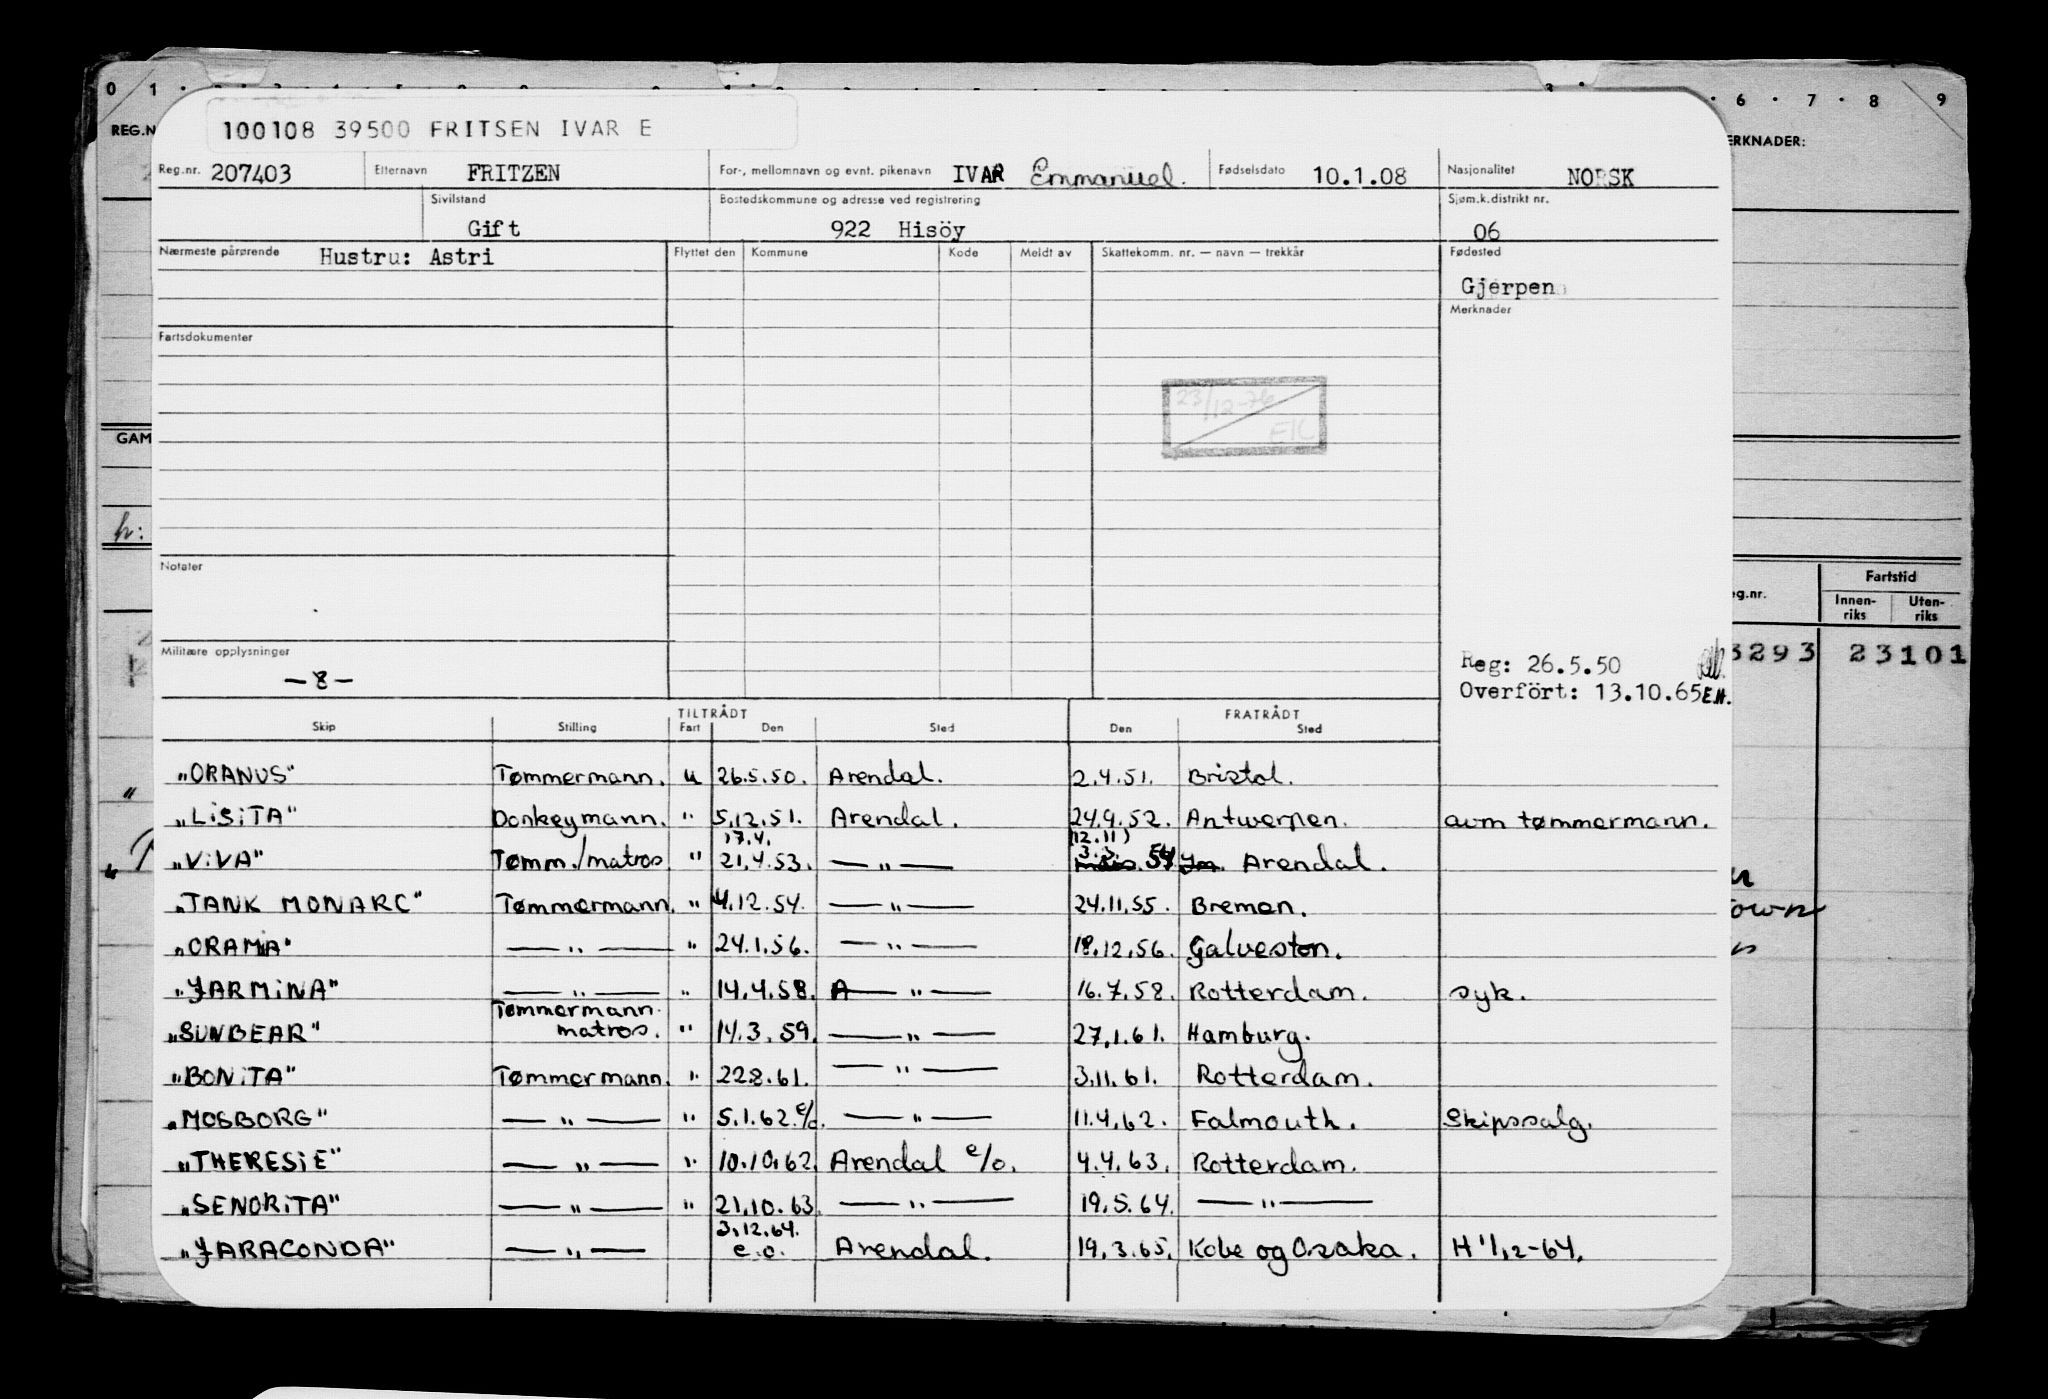 0 1
REG.N
6 · 7 · 8 9
ERKNADER:
100108 39500 FRITSEN IVAR E
Reg.nr. 207403 Etternavn FRITZEN For-, mellomnavn og evnt. pikenavn IVAR Emmanuel. Fødselsdato 10.1.08 Nasjonalitet NORSK
Sivilstand Bostedskommune og adresse ved registrering Sjøm.k.distrikt nr.
Gift 922 Hisöy 06
Nærmeste pårørende Hustru: Astri Flyttet den Kommune Kode Meldt av Skattekomm. nr. — navn — trekkår Fødested
Gjerpen
Merknader
Fartsdokumenter
23/12-76
EK
GAM
h:
Notater
Fartstid
eg.nr. Innenriks Utenriks
Militære opplysninger
— 8 —
3293 23101
Reg: 26.5.50
Overfört: 13.10.65 E.H.
TILTRÅDT FRATRÅDT
Skip Stilling Fart Den Sted Den Sted
"ORANUS" Tømmermann. u 26.5.50. Arendal. 2.4.51. Bristol.
"LISITA" Donkeymann. " 5.12.51. Arendal. 24.9.52. Antwerpen. avm tømmermann.
17.4. (12.11)
3.3. 54
"VIVA" Tømm./matros. " 21.4.53. — " — Arendal.
"TANK MONARC" Tømmermann. " 4.12.54. — " — 24.11.55. Bremen.
"ORAMA" — " — " 24.1.56. — " — 18.12.56. Galveston.
"JARMINA" — " — " 14.4.58. — " — 16.7.58. Rotterdam. syk.
Tømmermann.
"SUNBEAR" matros. " 14.3.59. — " — 27.1.61. Hamburg.
"BONITA" Tømmermann. " 22.8.61. — " — 3.11.61. Rotterdam.
"MOSBORG" — " — " 5.1.62. e/o. — " — 11.4.62. Falmouth. Skipssalg.
"THERESIE" — " — " 10.10.62. Arendal e/o. 4.4.63. Rotterdam.
"SENORITA" — " — " 21.10.63. — " — 19.5.64. — " —
3.12.64.
"JARACONDA" — " — e.o. Arendal. 19.3.65. Kobe og Osaka. H 1/12-64.